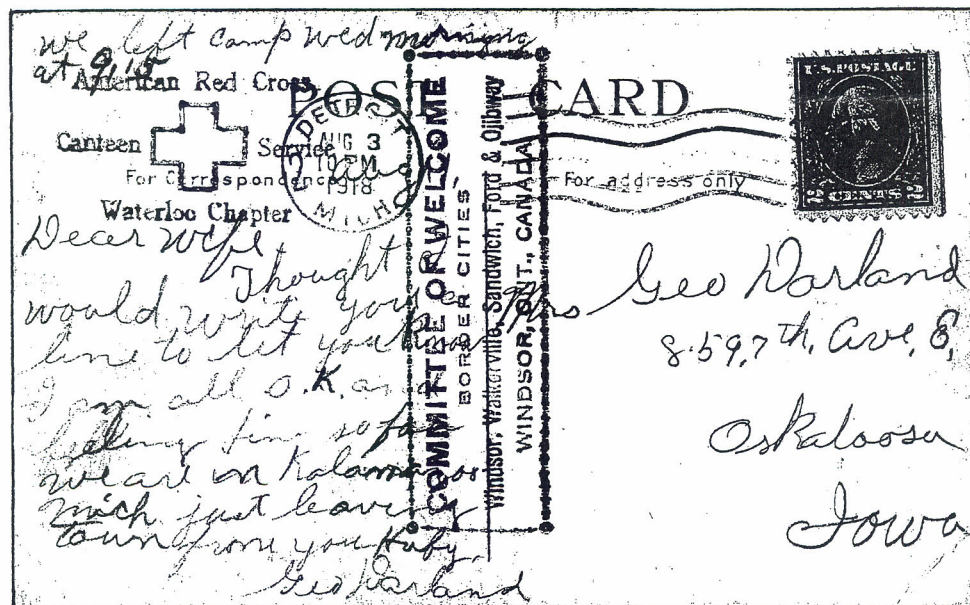 we left camp wed morning
at 9,15
American Red Cross
Canteen Service
Waterloo Chapter
POST CARD
For Correspondence
For address only
DETROIT
AUG 3
10 PM
1918
MICH
U.S. POSTAGE
2 CENTS 2
COMMITTEE OF WELCOME
BORDER CITIES
Windsor, Walkerville, Sandwich, Ford & Ojibway
WINDSOR, ONT., CANADA
Dear Wife
Thought I
would write you a
line to let you know
I am all O.K. and
feeling fine so far
we are in Kalamazoo
Mich just leaving
town from you Huby.
Geo Darland
Mrs Geo Darland
859,7th, Ave, E,
Oskaloosa
Iowa